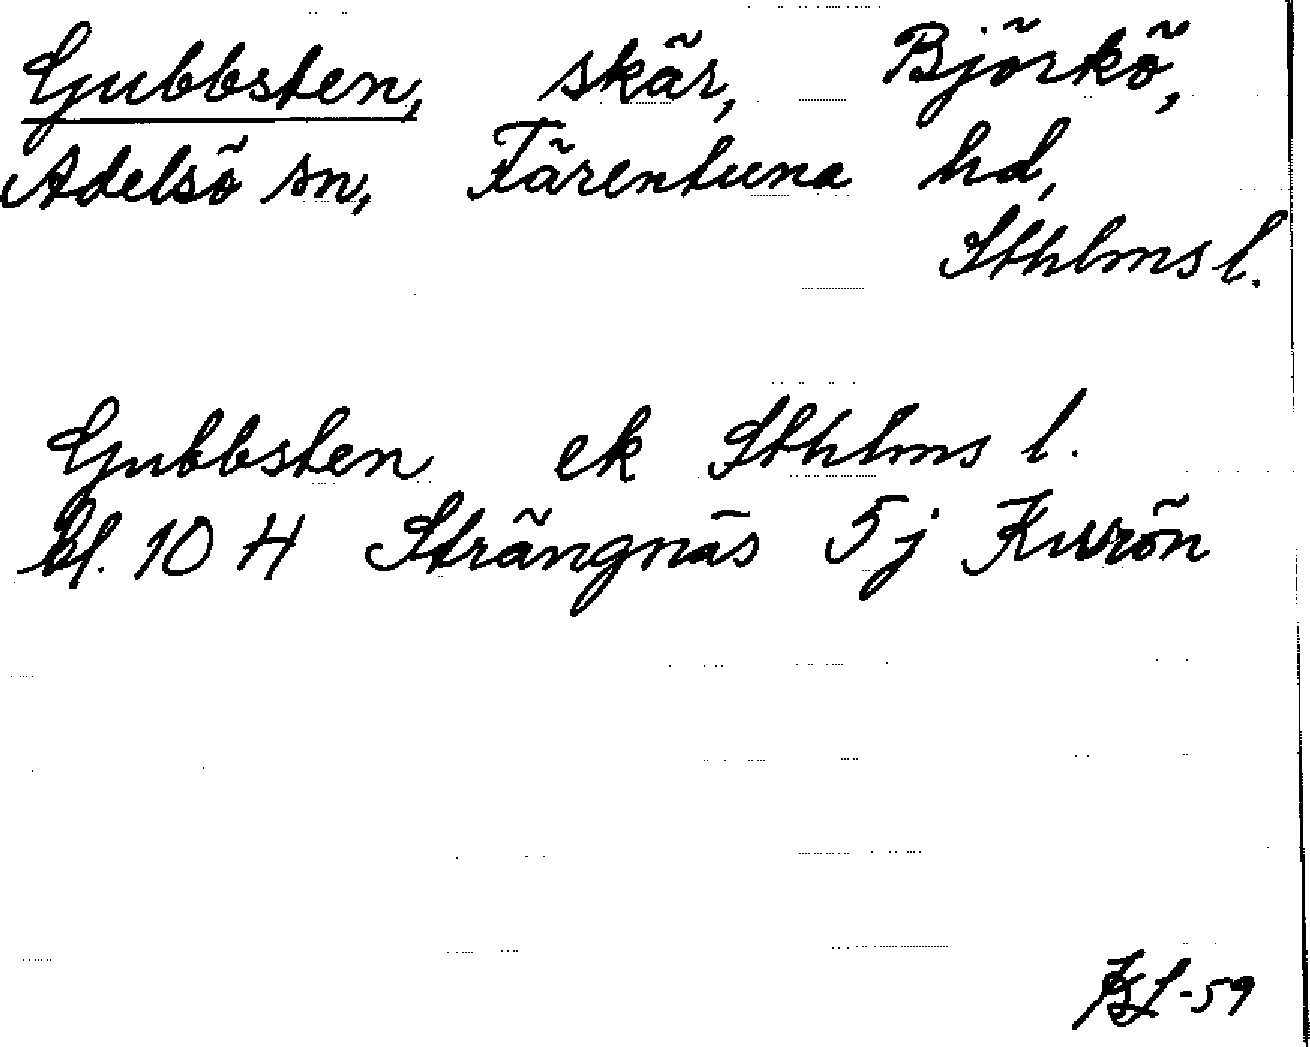 Gubbsten, skär, Björkö,
Adelsö sn, Färentuna hd,
Sthlms l.
Gubbsten ek Sthlms l.
bl. 10 H Strängnäs 5j Kurön
-59